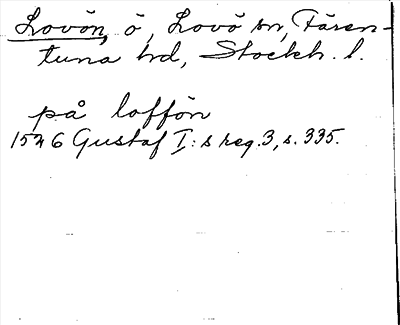 Lovön, ö, Lovö sn, Fären-
tuna hd, Stockh. l.
på loffön
1526 Gustaf I:s reg. 3, s. 335.